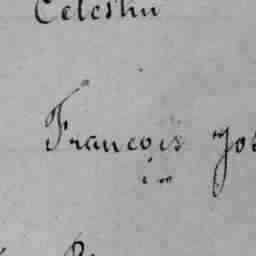 Celestin
François Jos